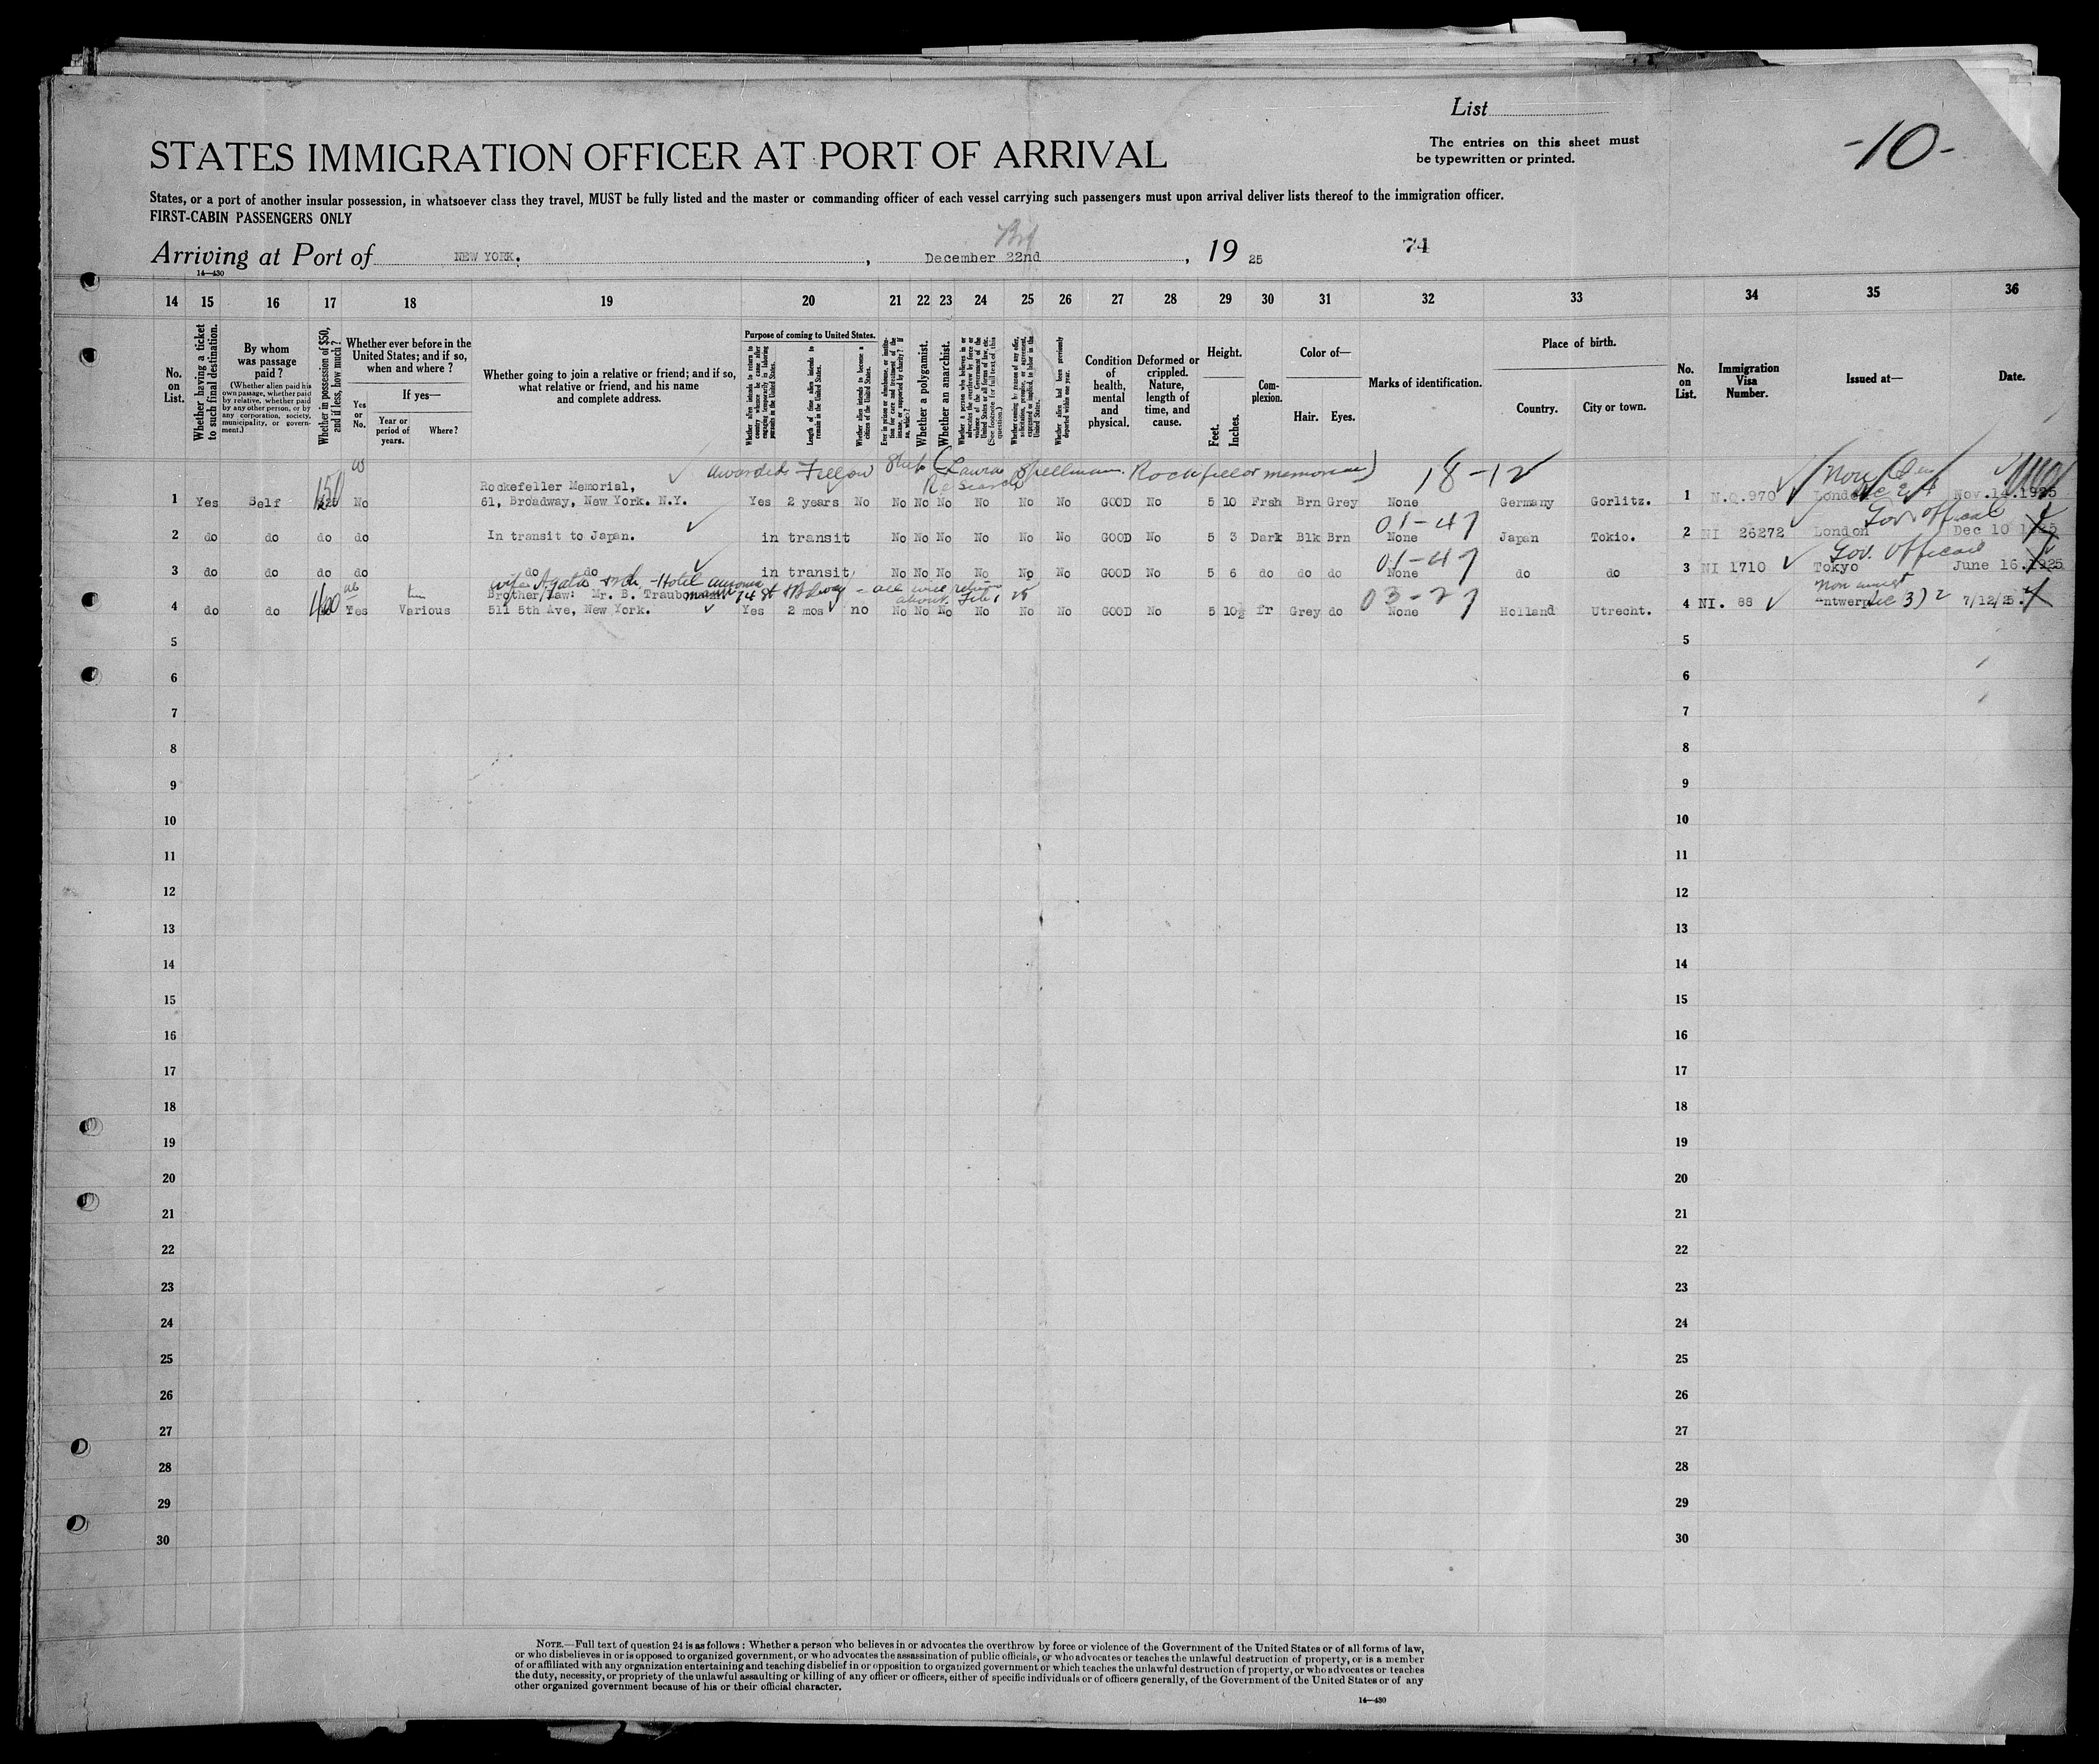 List
The entries on this sheet must
be typewritten or printed.
-10-
STATES IMMIGRATION OFFICER AT PORT OF ARRIVAL
States, or a port of another insular possession, in whatsoever class they travel, MUST be fully listed and the master or commanding officer of each vessel carrying such passengers must upon arrival deliver lists thereof to the immigration officer.
FIRST-CABIN PASSENGERS ONLY
Arriving at Port of NEW YORK. , December 22nd , 19 25 74
14—430
14 15 16 17 18 19 20 21 22 23 24 25 26 27 28 29 30 31 32 33 34 35 36
No. on List.
Whether having a ticket to such final destination.
By whom was passage paid?
(Whether alien paid his own passage, whether paid by relative, whether paid by any other person, or by any corporation, society, municipality, or government.)
Whether in possession of $50, and if less, how much?
Whether ever before in the United States; and if so, when and where?
Yes or No.
If yes—
Year or period of years.
Where?
Whether going to join a relative or friend; and if so, what relative or friend, and his name and complete address.
Purpose of coming to United States.
Whether alien intends to return to country whence he came after engaging temporarily in laboring pursuits in the United States.
Length of time alien intends to remain in the United States.
Whether alien intends to become a citizen of the United States.
Ever in prison or almshouse, or institution for care and treatment of the insane, or supported by charity? If so, which?
Whether a polygamist.
Whether an anarchist.
Whether a person who believes in or advocates the overthrow by force or violence of the Government of the United States or all forms of law, etc. (See footnote for full text of this question.)
Whether coming by reason of any offer, solicitation, promise, or agreement, expressed or implied, to labor in the United States.
Whether alien had been previously deported within one year.
Condition of health, mental and physical.
Deformed or crippled. Nature, length of time, and cause.
Height.
Feet.
Inches.
Complexion.
Color of—
Hair.
Eyes.
Marks of identification.
Place of birth.
Country.
City or town.
No. on List.
Immigration Visa Number.
Issued at—
Date.
Awarded Fellow Ship (Laura Spellman Rockfeller memorial) 18-12
Research
Rockefeller Memorial,
1 Yes Self 150 No 61, Broadway, New York. N.Y. Yes 2 years No No No No No No No GOOD No 5 10 Frsh Brn Grey None Germany Gorlitz. 1 N.Q.970 London Nov.14.1925
01-47 Gov. Official
2 do do do do In transit to Japan. in transit No No No No No No GOOD No 5 3 Dark Blk Brn None Japan Tokio. 2 NI 26272 London Dec 10 1925
01-47 Gov. Official
3 do do do do do do in transit No No No No No No GOOD No 5 6 do do do None do do 3 NI 1710 Tokyo June 16.1925
wife Hotel 74 St Bdway - all will return
about Feb.
03-27
Brother/Law: Mr. B. Traubomann
4 do do 400 Yes Various 511 5th Ave, New York. Yes 2 mos no No No No No No No GOOD No 5 10½ fr Grey do None Holland Utrecht. 4 NI. 88 Antwerp Sec 3)2 7/12/25.
5 5
6 6
7 7
8 8
9 9
10 10
11 11
12 12
13 13
14 14
15 15
16 16
17 17
18 18
19 19
20 20
21 21
22 22
23 23
24 24
25 25
26 26
27 27
28 28
29 29
30 30
NOTE.—Full text of question 24 is as follows: Whether a person who believes in or advocates the overthrow by force or violence of the Government of the United States or of all forms of law,
or who disbelieves in or is opposed to organized government, or who advocates the assassination of public officials, or who advocates or teaches the unlawful destruction of property, or is a member
of or affiliated with any organization entertaining and teaching disbelief in or opposition to organized government or which teaches the unlawful destruction of property, or who advocates or teaches
the duty, necessity, or propriety of the unlawful assaulting or killing of any officer or officers, either of specific individuals or of officers generally, of the Government of the United States or of any
other organized government because of his or their official character.
14—430